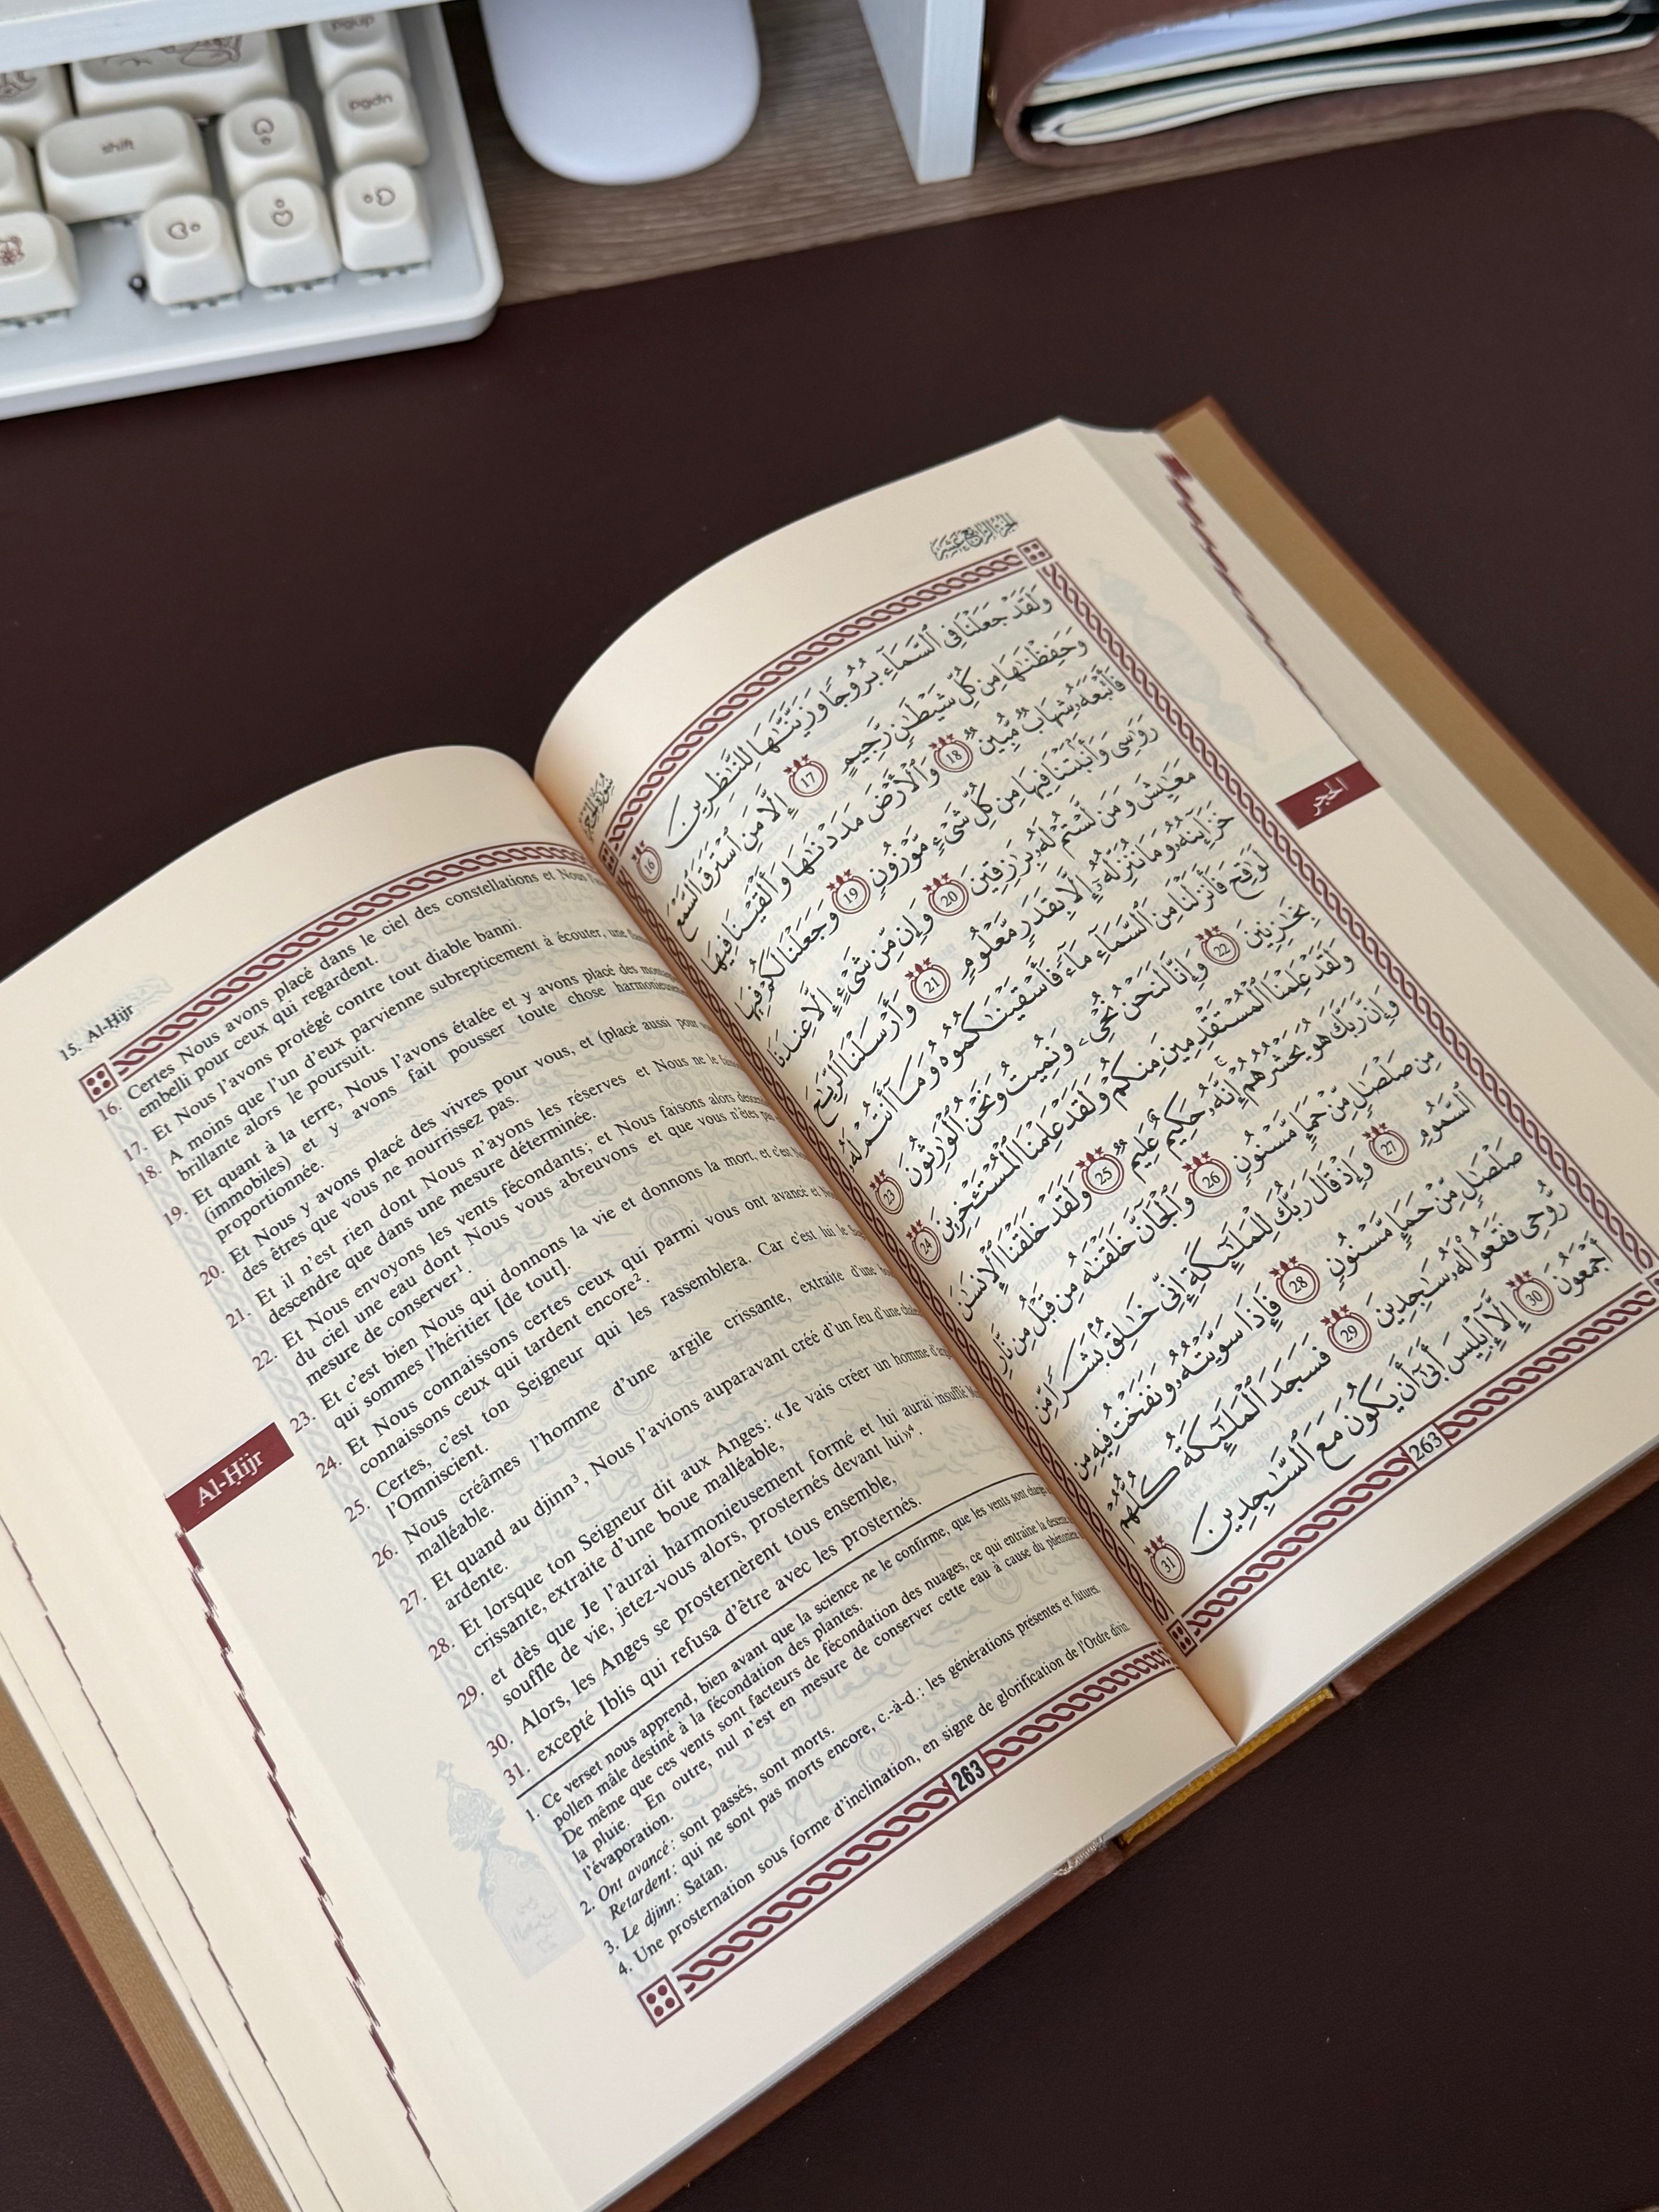 pgup
pgdn
shift
15. Al-Ḥijr
16. Certes Nous avons placé dans le ciel des constellations et Nous
embelli pour ceux qui regardent.
17. Et Nous l'avons protégé contre tout diable banni.
18. A moins que l'un d'eux parvienne subrepticement à écouter, une
brillante alors le poursuit.
19. Et quant à la terre, Nous l'avons étalée et y avons placé des
(immobiles) et y avons fait pousser toute chose
proportionnée.
20. Et Nous y avons placé des vivres pour vous, et (placé aussi pour
des êtres que vous ne nourrissez pas.
21. Et il n'est rien dont Nous n'ayons les réserves et Nous ne le
descendre que dans une mesure déterminée.
22. Et Nous envoyons les vents fécondants; et Nous faisons alors
du ciel une eau dont Nous vous abreuvons et que vous n'êtes
mesure de conserver¹.
23. Et c'est bien Nous qui donnons la vie et donnons la mort, et c'est
qui sommes l'héritier [de tout].
24. Et Nous connaissons certes ceux qui parmi vous ont avancé et
connaissons ceux qui tardent encore².
25. Certes, c'est ton Seigneur qui les rassemblera. Car c'est lui le
l'Omniscient.
26. Nous créâmes l'homme d'une argile crissante, extraite d'une
malléable.
27. Et quand au djinn³, Nous l'avions auparavant créé d'un feu d'une
ardente.
28. Et lorsque ton Seigneur dit aux Anges: «Je vais créer un homme
crissante, extraite d'une boue malléable,
29. et dès que Je l'aurai harmonieusement formé et lui aurai insufflé
souffle de vie, jetez-vous alors, prosternés devant lui»⁴.
30. Alors, les Anges se prosternèrent tous ensemble,
31. excepté Iblis qui refusa d'être avec les prosternés.
1. Ce verset nous apprend, bien avant que la science ne le confirme, que les vents sont
pollen mâle destiné à la fécondation des plantes.
De même que ces vents sont facteurs de fécondation des nuages, ce qui entraîne la
la pluie. En outre, nul n'est en mesure de conserver cette eau à cause du
l'évaporation.
2. Ont avancé: sont passés, sont morts.
Retardent: qui ne sont pas morts encore, c.-à-d.: les générations présentes et futures.
3. Le djinn: Satan.
4. Une prosternation sous forme d'inclination, en signe de glorification de l'Ordre divin.
263
Al-Ḥijr
الجزء الرابع عشر
وَلَقَدْ جَعَلْنَا فِي ٱلسَّمَآءِ بُرُوجًا وَزَيَّنَّٰهَا لِلنَّٰظِرِينَ 16
وَحَفِظْنَٰهَا مِن كُلِّ شَيْطَٰنٍ رَّجِيمٍ 17 إِلَّا مَنِ ٱسْتَرَقَ ٱلسَّمْعَ
فَأَتْبَعَهُۥ شِهَابٌ مُّبِينٌ 18 وَٱلْأَرْضَ مَدَدْنَٰهَا وَأَلْقَيْنَا فِيهَا
رَوَٰسِىَ وَأَنۢبَتْنَا فِيهَا مِن كُلِّ شَىْءٍ مَّوْزُونٍ 19 وَجَعَلْنَا لَكُمْ فِيهَا
مَعَٰيِشَ وَمَن لَّسْتُمْ لَهُۥ بِرَٰزِقِينَ 20 وَإِن مِّن شَىْءٍ إِلَّا عِندَنَا
خَزَآئِنُهُۥ وَمَا نُنَزِّلُهُۥٓ إِلَّا بِقَدَرٍ مَّعْلُومٍ 21 وَأَرْسَلْنَا ٱلرِّيَٰحَ
لَوَٰقِحَ فَأَنزَلْنَا مِنَ ٱلسَّمَآءِ مَآءً فَأَسْقَيْنَٰكُمُوهُ وَمَآ أَنتُمْ لَهُۥ
بِخَٰزِنِينَ 22 وَإِنَّا لَنَحْنُ نُحْىِۦ وَنُمِيتُ وَنَحْنُ ٱلْوَٰرِثُونَ 23
وَلَقَدْ عَلِمْنَا ٱلْمُسْتَقْدِمِينَ مِنكُمْ وَلَقَدْ عَلِمْنَا ٱلْمُسْتَـْٔخِرِينَ 24
وَإِنَّ رَبَّكَ هُوَ يَحْشُرُهُمْ إِنَّهُۥ حَكِيمٌ عَلِيمٌ 25 وَلَقَدْ خَلَقْنَا ٱلْإِنسَٰنَ
مِن صَلْصَٰلٍ مِّنْ حَمَإٍ مَّسْنُونٍ 26 وَٱلْجَآنَّ خَلَقْنَٰهُ مِن قَبْلُ مِن نَّارِ
ٱلسَّمُومِ 27 وَإِذْ قَالَ رَبُّكَ لِلْمَلَٰٓئِكَةِ إِنِّى خَٰلِقٌۢ بَشَرًا مِّن
صَلْصَٰلٍ مِّنْ حَمَإٍ مَّسْنُونٍ 28 فَإِذَا سَوَّيْتُهُۥ وَنَفَخْتُ فِيهِ مِن
رُّوحِى فَقَعُوا۟ لَهُۥ سَٰجِدِينَ 29 فَسَجَدَ ٱلْمَلَٰٓئِكَةُ كُلُّهُمْ
أَجْمَعُونَ 30 إِلَّآ إِبْلِيسَ أَبَىٰٓ أَن يَكُونَ مَعَ ٱلسَّٰجِدِينَ 31
263
الحجر